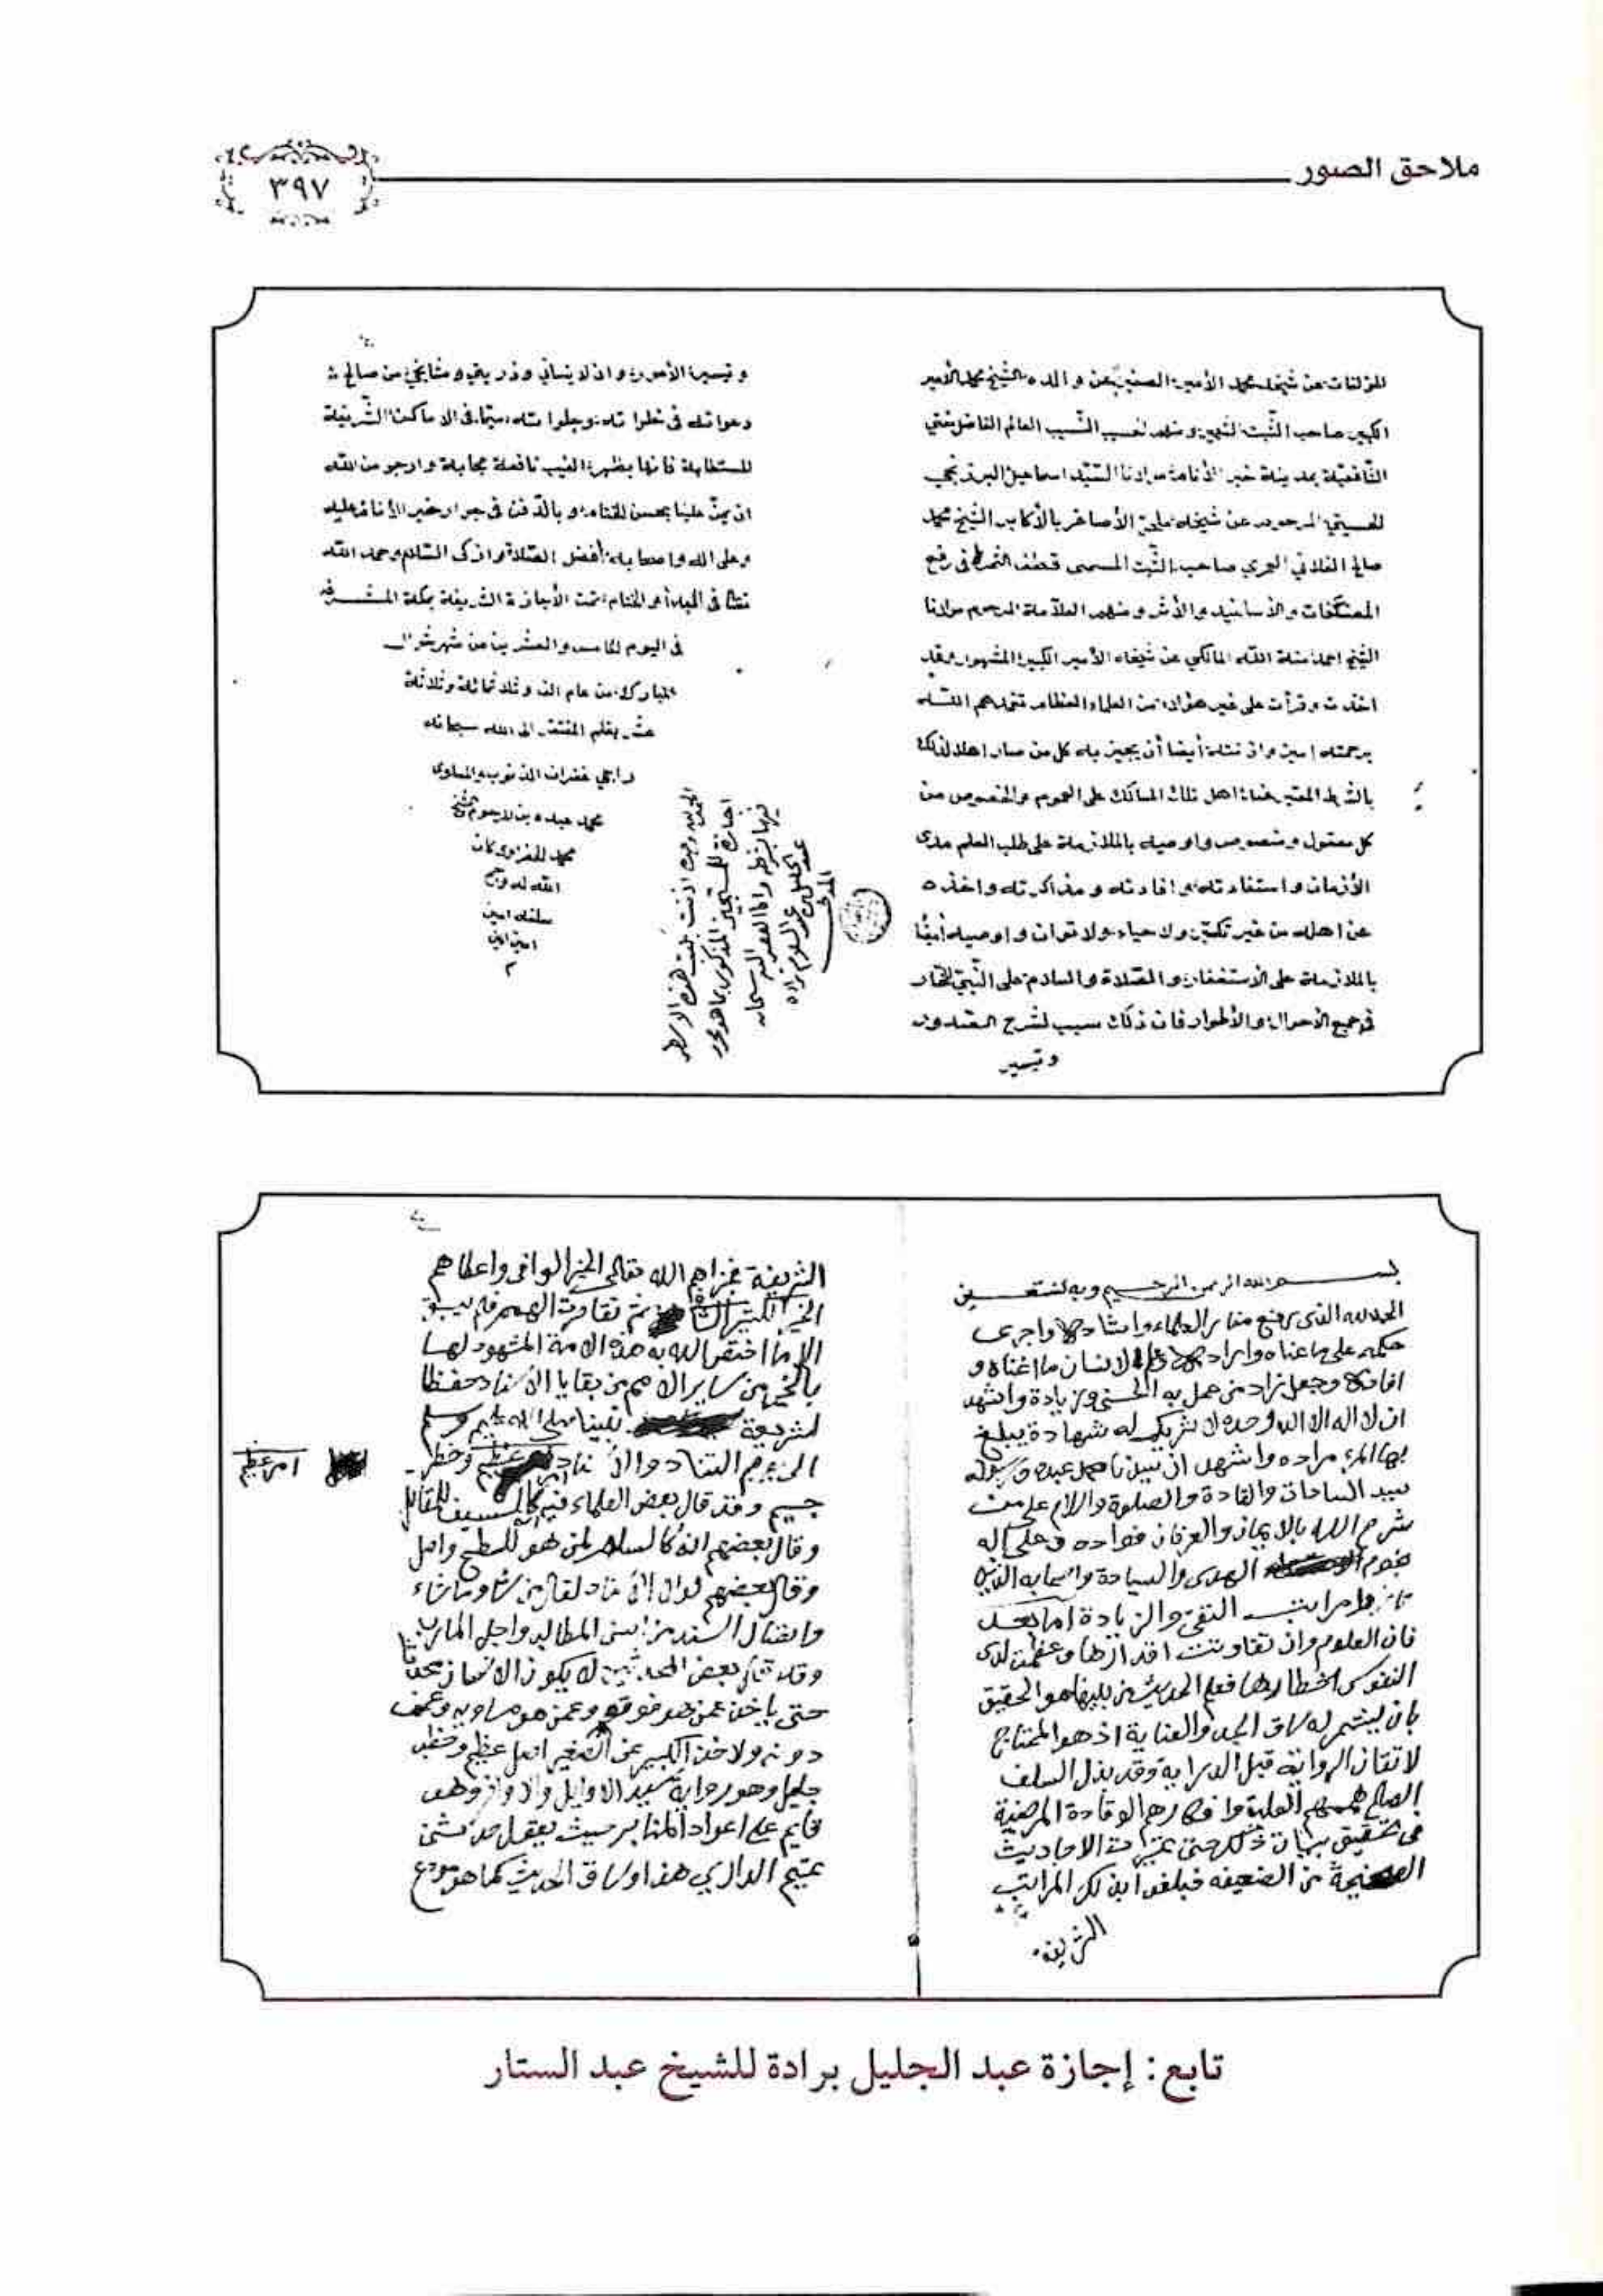 ملاحق الصور
٣٩٧
المؤلفات عن شيخه محمد الأمير الصغير عن والده الشيخ محمد الأمير
الكبير صاحب الثبت الشهير ومنهم الحسيب النسيب العالم الفاضل مفتي
الشافعية بمدينة خير الأنام مولانا السيد اسماعيل البرزنجي
الحسيني المرحوم عن شيخه ملحق الأصاغر بالأكابر الشيخ محمد
صالح الفلاني العمري صاحب الثبت المسمى قطف الثمر في رفع
المصنفات والأسانيد والأثر ومنهم العلامة المرحوم مولانا
الشيخ احمد منة الله المالكي عن شيخه الأمير الكبير المشهور وقد
اخذت وقرأت على غير هؤلاء من العلماء العظام تغمدهم الله
برحمته امين واذنته أيضا أن يجيز به كل من صار اهلا لذلك
بالشرط المعتبر عند اهل تلك المسالك على العموم والخصوص من
كل معقول ومنصوص واوصيه بالملازمة على طلب العلم مدى
الأزمان واستفادته وافادته ومذاكرته واخذه
عن اهله من غير تكبر ولا حياء ولا توان واوصيه أيضا
بالملازمة على الاستغفار والصلاة والسلام على النبي المختار
في جميع الأحوال والأطوار فان ذلك سبب لشرح الصدور
وتيسير
وتيسير الأمور وان لا ينساني وذريتي ومشايخي من صالح
دعواته في خلواته وجلواته سيما في الاماكن الشريفة
المستطابة فانها بظهر الغيب نافعة مجابة وارجو من الله
ان يمن علينا بحسن الختام وبالدفن في جوار خير الأنام عليه
وعلى اله واصحابه أفضل الصلاة وازكى السلام وحمد الله
لنا في المبدأ والختام تمت الأجازة الشريفة بمكة المشرفه
في اليوم الخامس والعشرين من شهر شوال
المبارك من عام الف وثلاثمائة وثلاثة
عشر بقلم المفتقر الى الله سبحانه
راجي غفران الذنوب والمساوى
محمد عبده بن المرحوم الشيخ
محمد كان
الله له ورحم
سلفه امين
امين امين
الحمد لله وحده اذنت بكتب هذه الاسطر
اجازة للمستجيز المذكور بما هو محرر
فيها بشرطه وانا الفقير اليه سبحانه
عبد الجليل بن عبد السلام براده
المدني
بسم الله الرحمن الرحيم وبه نستعين
الحمد لله الذي رفع منابر العلماء واشادها واجرى
حكمه على ما عناه وارادها وعلم الانسان ما اغناه و
افادها وجعل زاد من عمل به الحسنى وزيادة واشهد
ان لا اله الا الله وحده لا شريك له شهادة يبلغ
بها المرء مراده واشهد ان نبينا محمد عبده ورسوله
سيد السادات والقادة والصلوة والسلام على من
شرح الله بالايمان والعرفان فواده وعلى اله
نجوم الهدى والسيادة واصحابه الذين
مراتب التقى والزيادة اما بعد
فان العلوم وان تفاوتت اقدارها وعظمت لدى
النفوس اخطارها فعلم الحديث من بينها هو الحقيق
بان يشمر له ساق الجد والعناية اذ هو المحتاج
لاتقان الرواية قبل الدراية وقد بذل السلف
الصالح هممهم العلية وافكارهم الوقادة المرضية
في تحقيق بيان ذلك حتى ميزت الاحاديث
الصحيحة من الضعيفه فبلغوا بذلك المراتب
الشريفه
الشريفة فجزاهم الله تعالى الخير الوافي واعطاهم
الخير الكثير ثم تقاصرت الهمم فلم يبق
الا ما اختص الله به هذه الامة المشهود لها
بالخير من ساير الامم من بقايا الاسناد حفظا
لشريعة نبينا صلى الله عليه وسلم
الى يوم التناد والاسناد امر عظيم وخطر
جسيم وقد قال بعض العلماء فيه انه كالسيف للمقاتل
وقال بعضهم انه كالسلم لمن هو للسطح واصل
وقال بعضهم لولا الاسناد لقال من شاء ما شاء
واتصال السند من اسنى المطالب واجل المارب
وقد قال بعض المحدثين لا يكون الانسان محدثا
حتى ياخذ عمن هو فوقه وعمن هو مساويه وعمن
دونه ولاخذ الكبير عن الصغير اصل عظيم وخطب
جليل وهو رواية سيد الاوايل والاواخر وهو
قايم على اعواد المنابر حيث يقول حدثني
تميم الداري هذا وساق الحديث كما هو مودع
امر عظيم
تابع: إجازة عبد الجليل برادة للشيخ عبد الستار